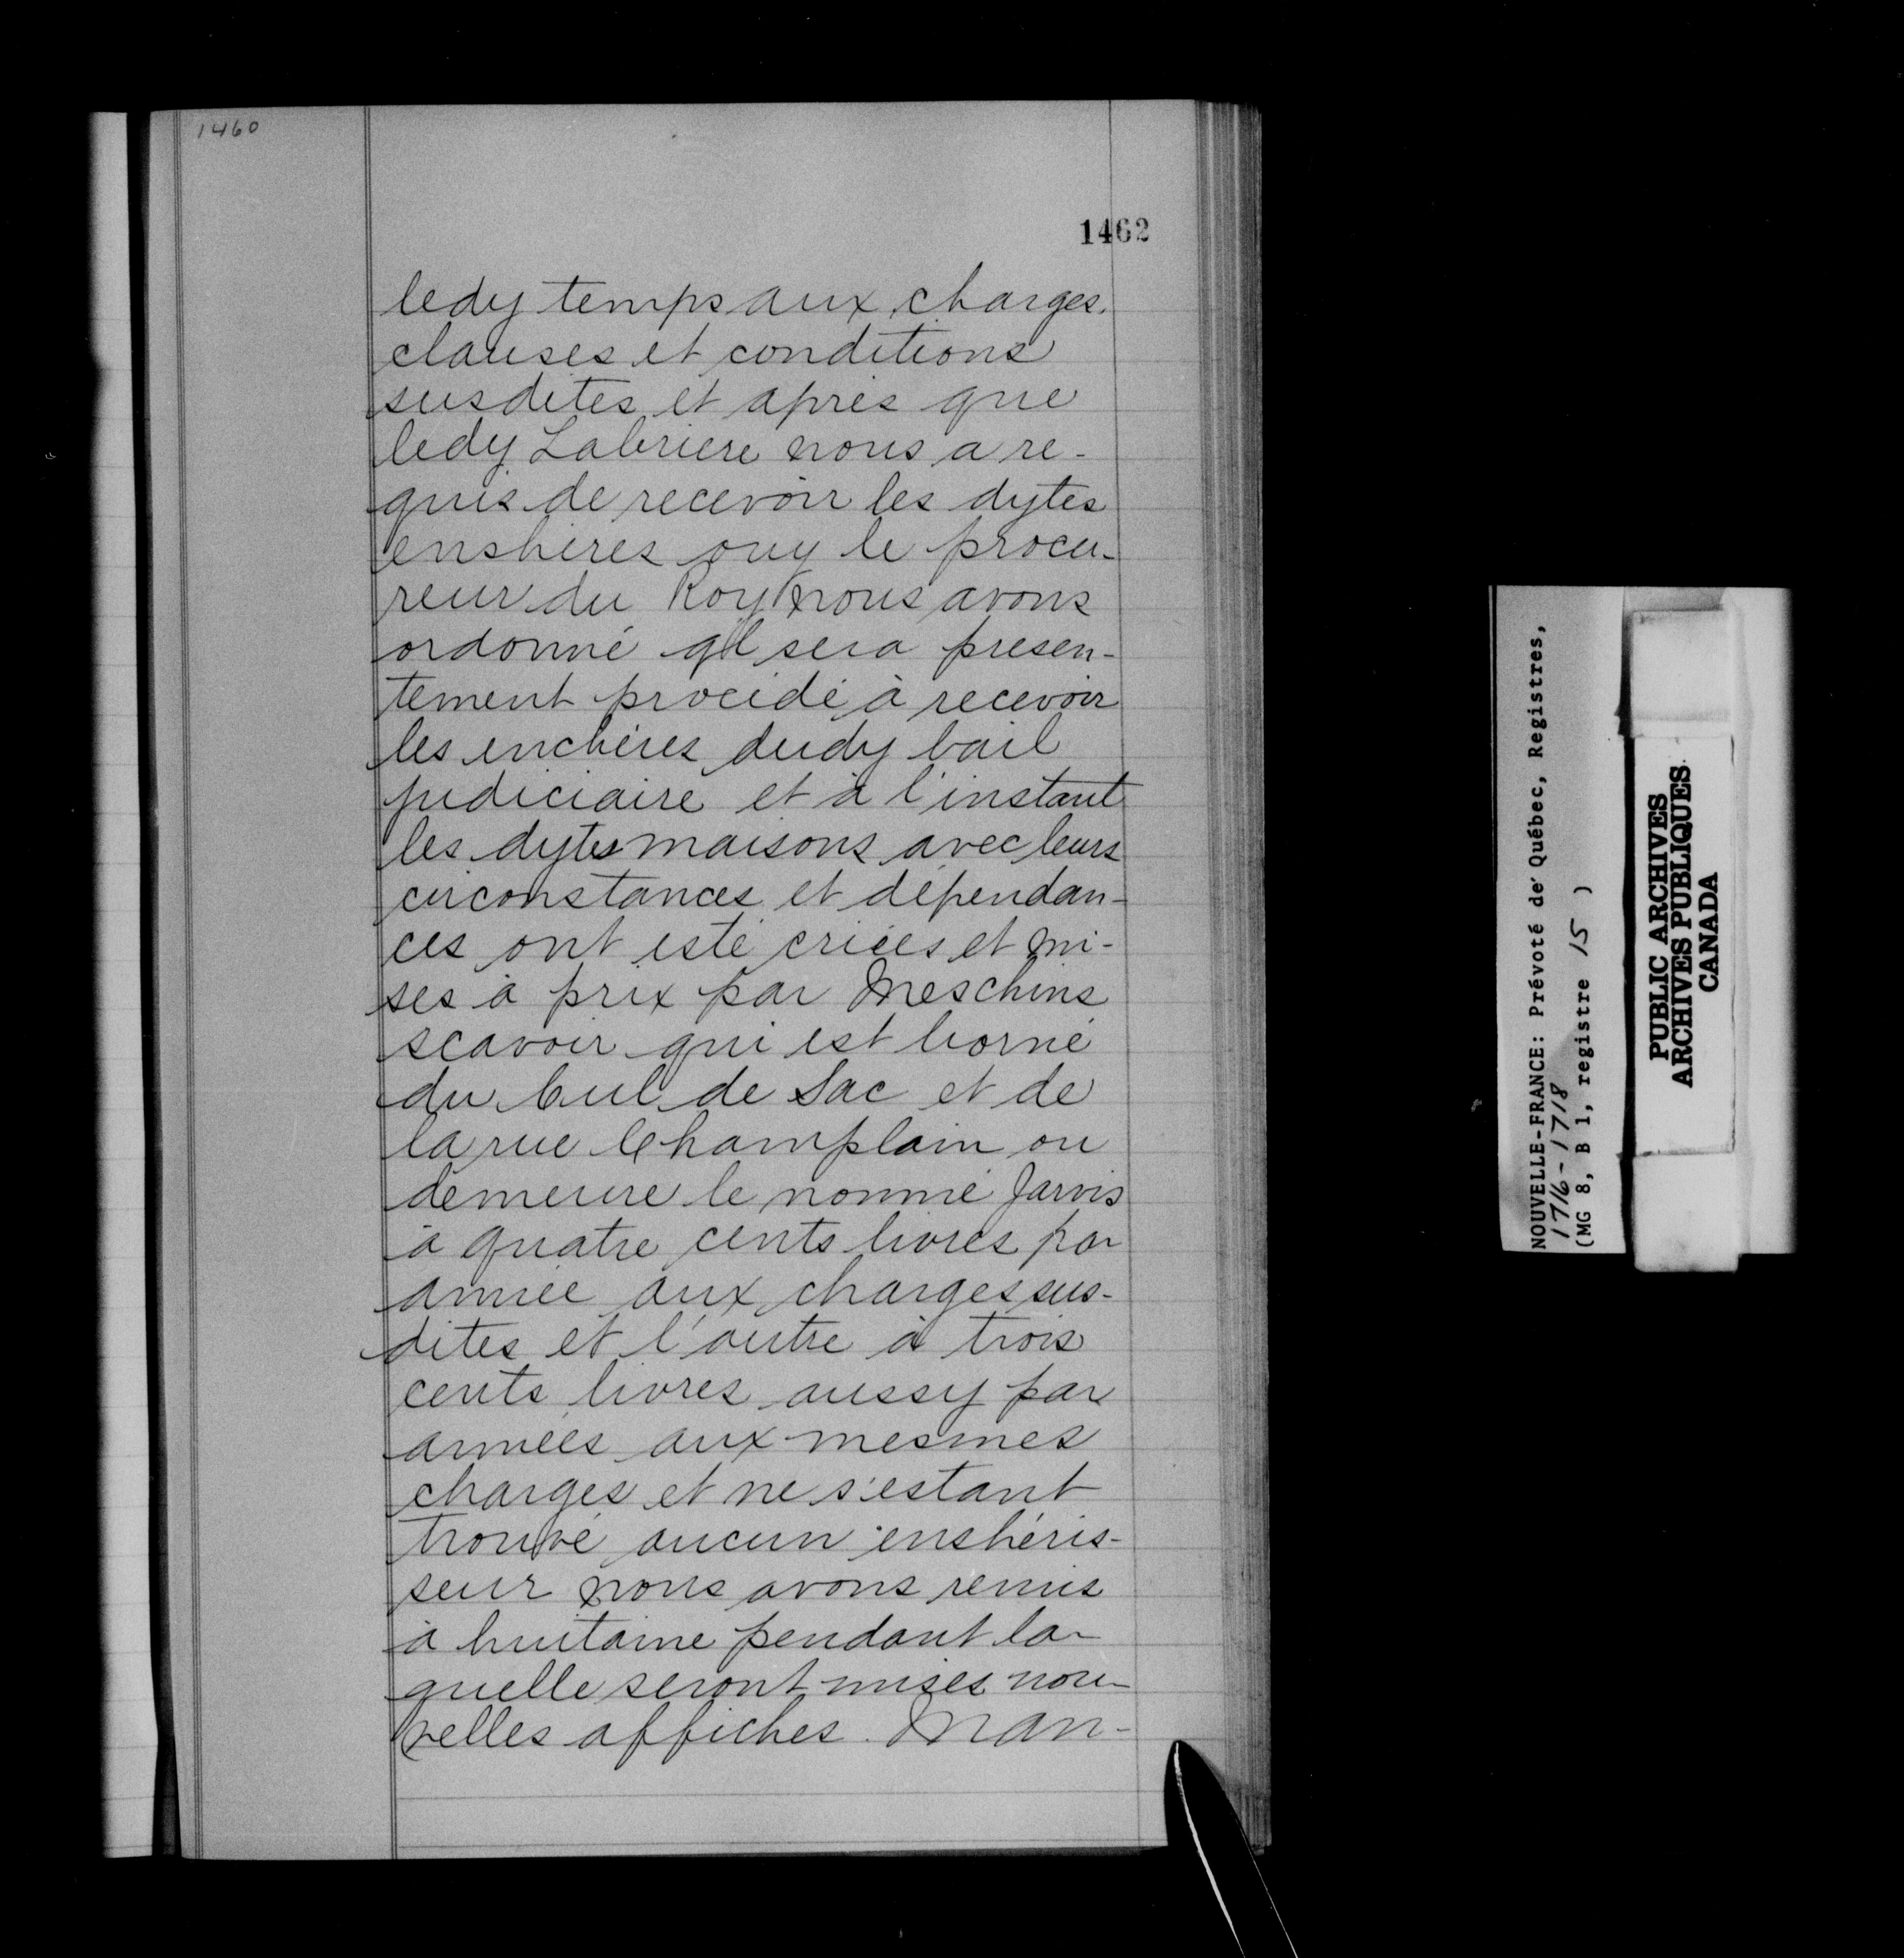 1460
1462
ledy temps aux charges.
clauses et conditions
susdites et après que
ledy Labriere nous a re-
quis de recevoir les dytes
enshères ouy le procu-
reur du Roy nous avons
ordonné ql sera presen-
tement procédé à recevoir
les enchères dudy bail
judiciaire et à l'instant
les dytes maisons avec leurs
circonstances et dépendan-
ces ont esté criées et mi-
ses à prix par Meschins
scavoir qui est borné
du Cul de Sac et de
la rue Champlain ou
demeure le nommé Jarvis
à quatre cents livres par
année aux charges sus-
dites et l'autre à trois
cents livres aussy par
années aux mesmes
charges et ne s'estant
trouvé aucun enshéris-
seur nous avons remis
à huitaine pendant la-
quelle seront mises nou-
velles affiches. Man-
NOUVELLE-FRANCE: Prévoté de Québec, Registres,
1716-1718
(MG 8, B 1, registre 15 )
PUBLIC ARCHIVES
ARCHIVES PUBLIQUES
CANADA